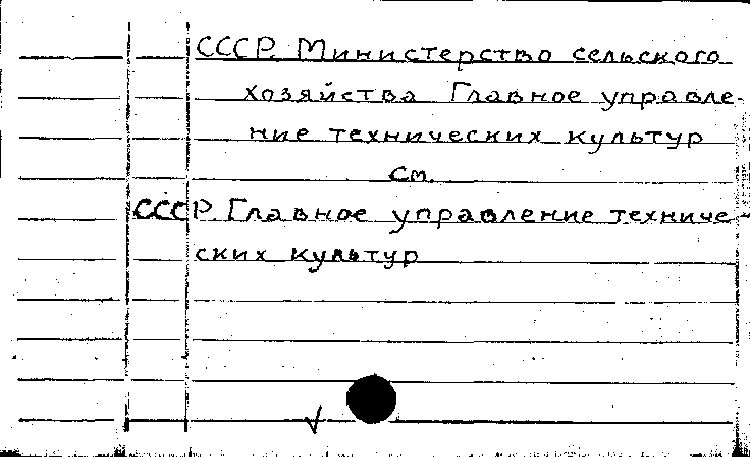 СССР. Министерство сельского
хозяйства Главное управле-
ние технических культур
см.
СССР. Главное управление техниче-
ских культур